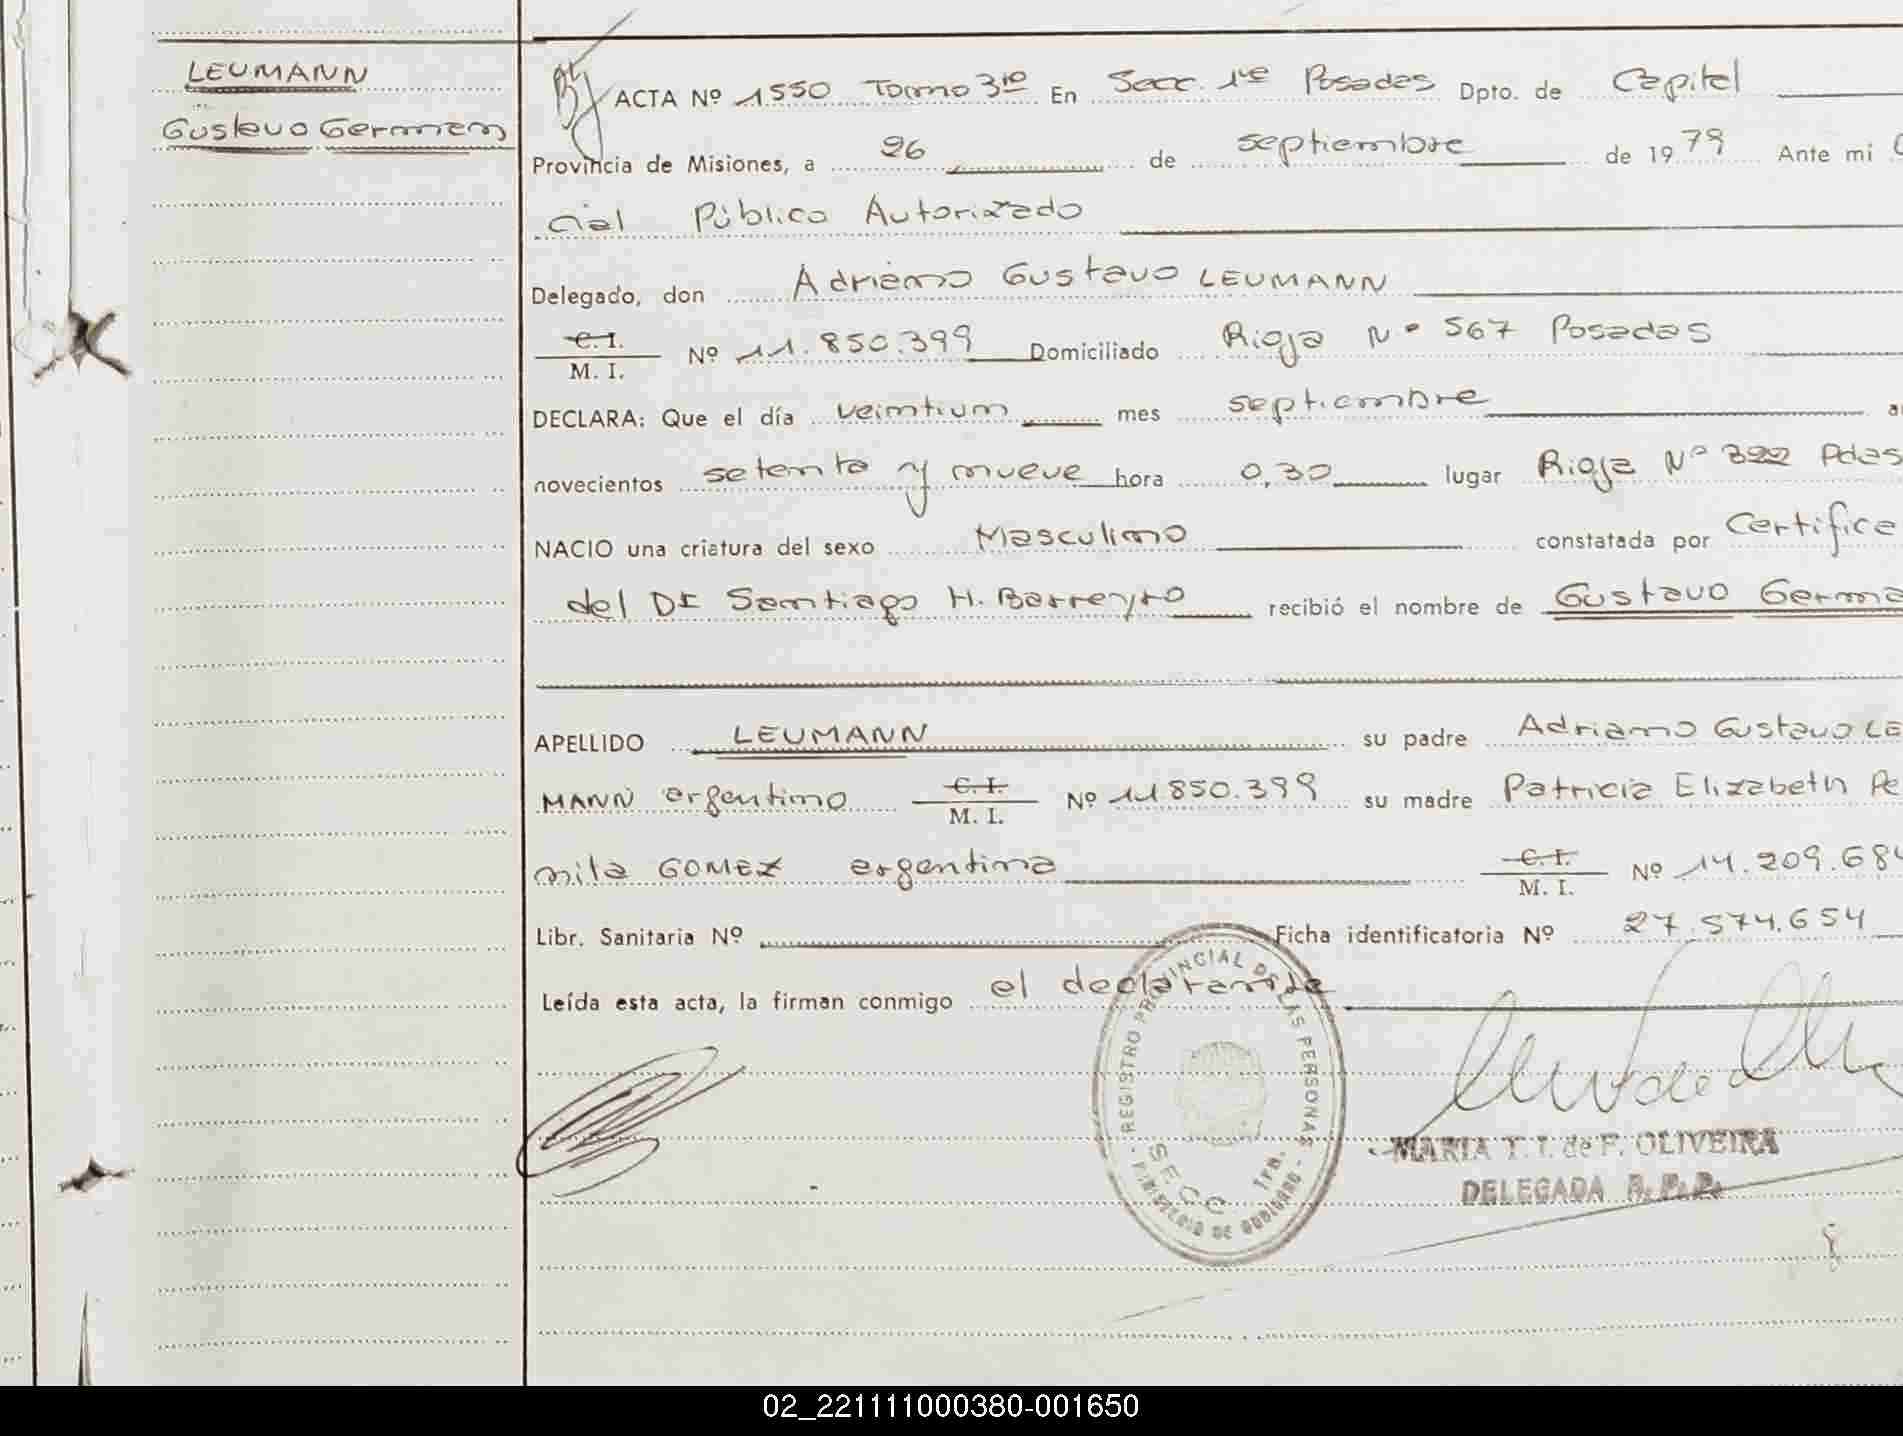 LEUMANN
Gustavo German
ACTA Nº 1550 Tomo 3ro En Secc. 1ra Posadas Dpto. de Capital
Provincia de Misiones, a 26 de septiembre de 1979 Ante mi
cial Público Autorizado
Delegado, don Adriano Gustavo LEUMANN
C. I.
M. I. Nº 11.850.399 Domiciliado Rioja Nº 567 Posadas
DECLARA: Que el día veintiun mes septiembre
novecientos setenta y nueve hora 0,30 lugar Rioja Nº 322 Pdas
NACIO una criatura del sexo Masculino constatada por Certifica
del Dr Santiago H. Barreyro recibió el nombre de Gustavo Germa
APELLIDO LEUMANN su padre Adriano Gustavo LE
MANN argentino C. I. M. I. Nº 11850.399 su madre Patricia Elizabeth Pe
nita GOMEZ argentina C. I. M. I. Nº 14.209.684
Libr. Sanitaria Nº Ficha identificatoria Nº 27.574.654
Leída esta acta, la firman conmigo el declarante
REGISTRO PROVINCIAL DE LAS PERSONAS
SECC 1ra.
MINISTERIO DE GOBIERNO
MARIA T. I. de F. OLIVEIRA
DELEGADA R. P. P.
02_221111000380-001650